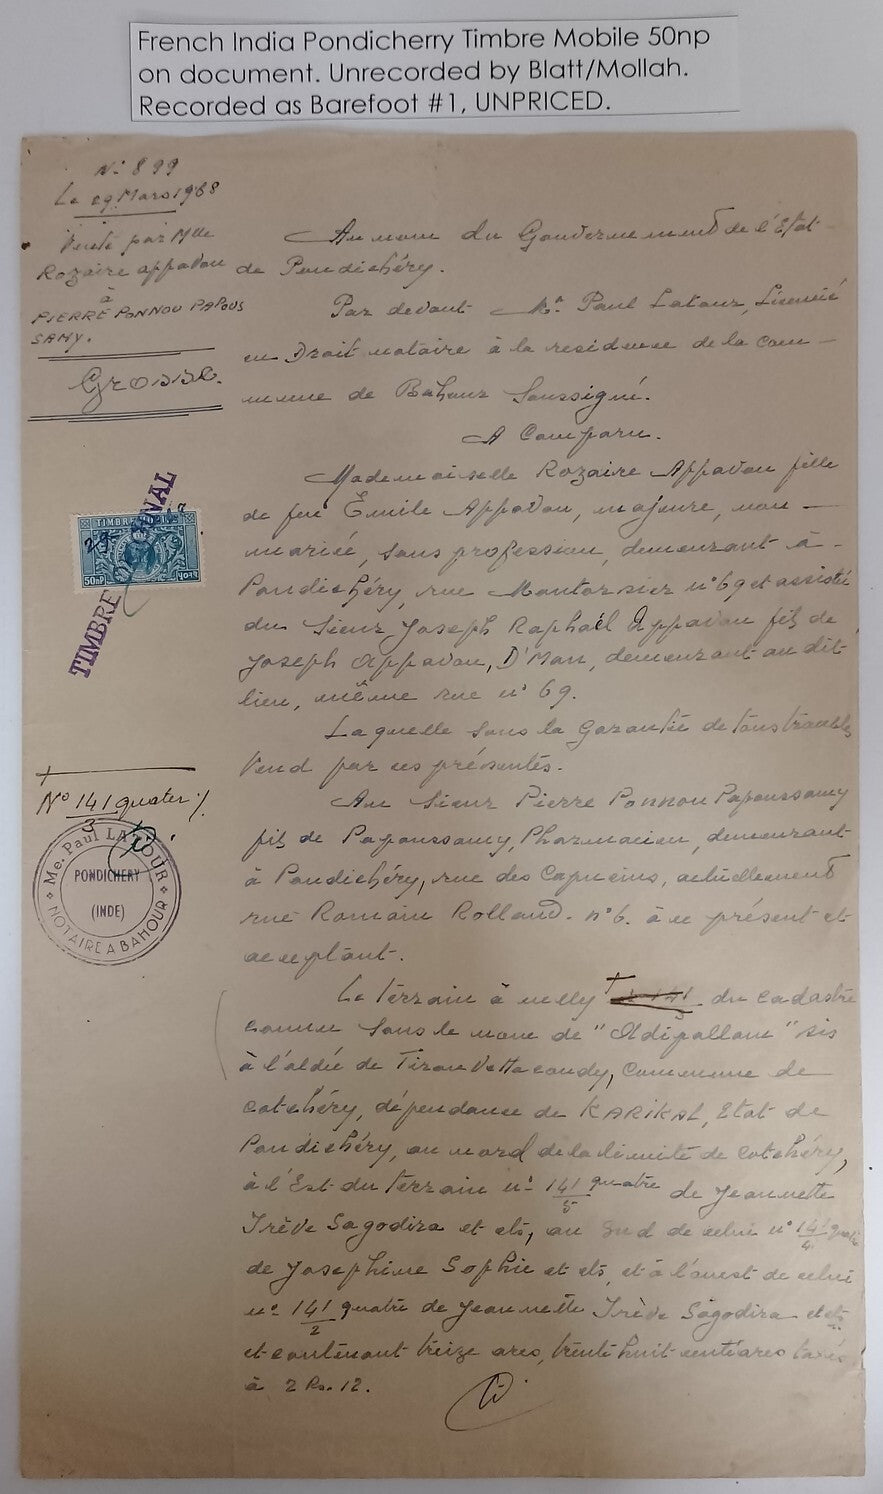 French India Pondicherry Timbre Mobile 50np
on document. Unrecorded by Blatt/Mollah.
Recorded as Barefoot #1, UNPRICED.
No 899
Le 29 Mars 1968
Vente par Mlle
Rozaire Appavou
à
PIERRE PONNOU PAPOUS
SAMY.
Grosse.
TIMBRE
50NP
No 141 quater
3
Me. Paul LATOUR
PONDICHERY
(INDE)
NOTAIRE A BAHOUR
Au nom du Gouvernement de l'Etat
de Pondichéry.
Par devant Me. Paul Latour, Licencié
en Droit notaire à la residence de la Com-
mune de Bahour Soussigné.
A Comparu.
Mademoiselle Rozaire Appavou fille
de feu Émile Appavou, majeure, non-
mariée, sans profession, demeurant à-
Pondichéry, rue Montorsier no 69 et assisté
du Sieur Joseph Raphaël Appavou fils de
Joseph Appavou, D'Mou, demeurant au dit
lieu, même rue no 69.
Laquelle sous la Garantie de tous troubles
Vend par ces présentes.
Au Sieur Pierre Ponnou Papoussamy
fils de Papoussamy, Pharmacien, demeurant
à Pondichéry, rue des Capucins, actuellement
rue Romain Rolland. no 6. à ce présent et
acceptant.
Le terrain à nelly 141 du cadastre
connu sous le nom de "Adipallam" sis
à l'aldée de Tirouvettacoudy, Commune de
Cotchéry, dépendance de KARIKAL, Etat de
Pondichéry, au nord de la limite de Cotchéry,
à l'Est du terrain no 141/5 quatre de Jeannette
Trève Sagodira et cts, au Sud de celui no 141/4
de Josephine Sophie et cts, et à l'ouest de celui
no 141/2 quatre de Jeannette Trève Sagodira et cts
et contenant treize ares, trente huit centiares taxés
à 2 Rs. 12.